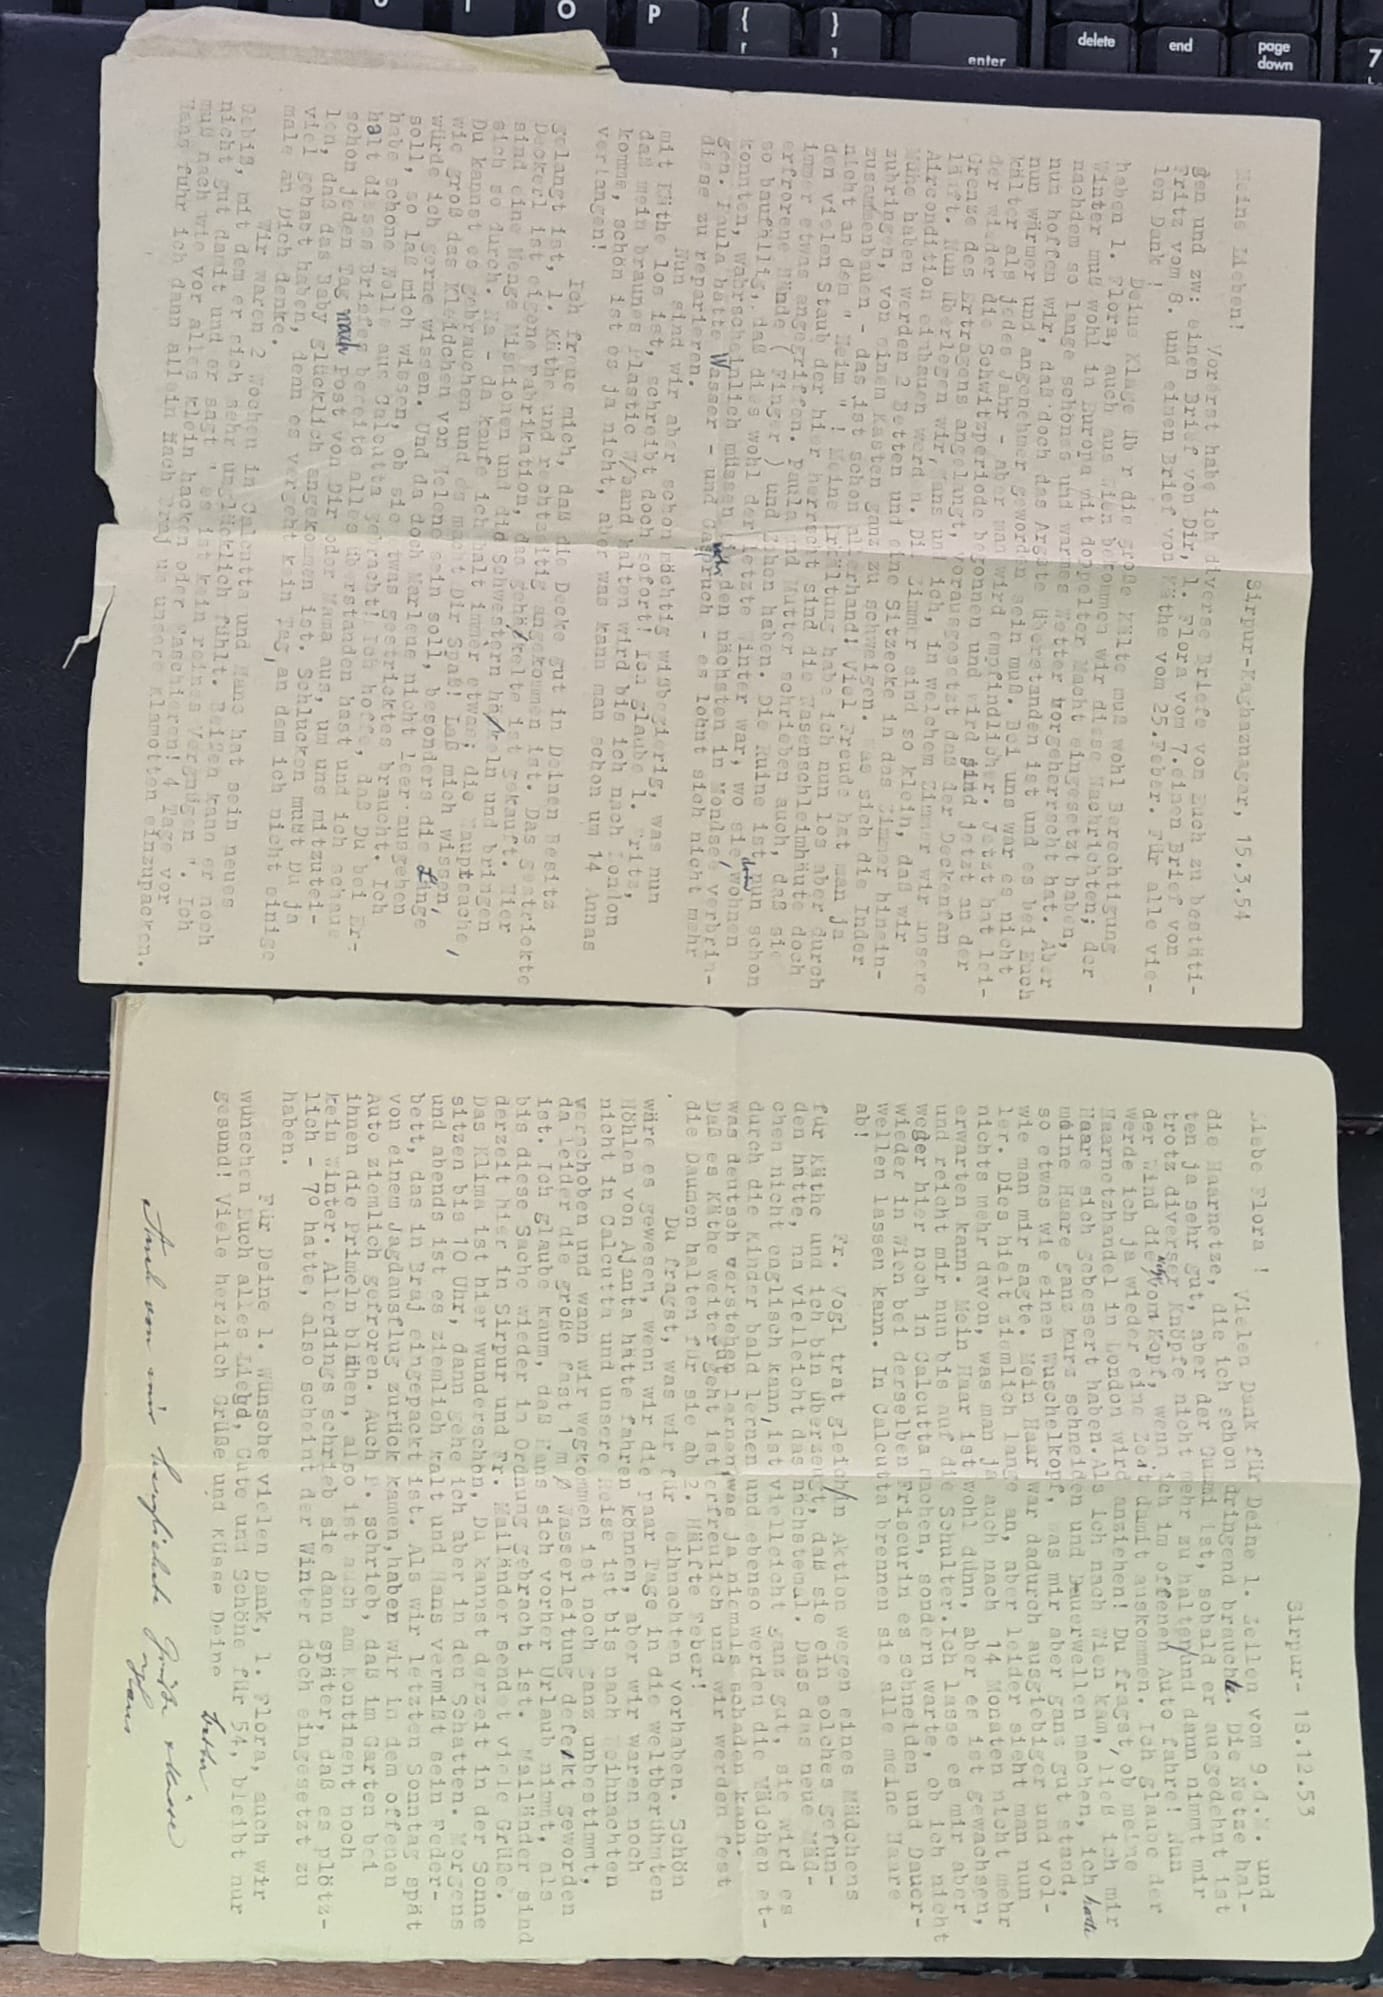 Sirpur-Kaghaznager, 15.3.54
Meine Lieben!
Vorerst habe ich diverse Briefe von Euch zu bestäti-
gen und zw: einen Brief von Dir, l. Flora vom 7. einen Brief von
Fritz vom 8. und einen Brief von Käthe vom 25.Feber. Für alle vie-
len Dank !
Deine Klage üb r die große Kälte muß wohl Berechtigung
haben l. Flora, auch aus Wien bekommen wir diese Nachrichten; der
Winter muß wohl in Europa mit doppelter Macht eingesetzt haben,
nachdem so lange schönes und warmes Wetter vorgeherrscht hat. Aber
nun hoffen wir, daß doch das Ärgste überstanden ist und es bei Euch
nun wärmer und angenehmer geworden sein muß. Bei uns war es nicht
kälter als jedes Jahr - aber man wird empfindlicher. Jetzt hat lei-
der wieder die Schwitzperiode begonnen und wird sind jetzt an der
Grenze des Ertragens angelangt, vorausgesetzt daß der Deckenfan
läuft. Nun überlegen wir, Hans und ich, in welchem Zimmer wir unsere
Aircondition einbauen werden. Die Zimmer sind so klein, daß wir
Mühe haben werden 2 Betten und eine Sitzecke in das Zimmer hinein-
zubringen, von einem Kasten ganz zu schweigen. Was sich die Inder
zusammenbauen - das ist schon allerhand! Viel Freude hat man ja
nicht an dem " Heim " ! Meine Erkältung habe ich nun los aber durch
den vielen Staub der hier herrscht sind die Nasenschleimhäute doch
immer etwas angegriffen. Paula und Mutter schrieben auch, daß sie
erfrorene Hände ( Finger ) und Zehen haben. Die Ruine ist nun schon
so baufällig, daß dies wohl der letzte Winter war, wo sie drin wohnen
konnten, wahrscheinlich müssen sie den nächsten in Mondsee verbrin-
gen. Paula hatte Wasser - und Gasrohrbruch - es lohnt sich nicht mehr
diese zu reparieren.
Nun sind wir aber schon mächtig wißbegierig, was nun
mit Käthe los ist, schreibt doch sofort! Ich glaube l. Fritz,
daß mein braunes Plastic W/band halten wird bis ich nach London
komme, schön ist es ja nicht, aber was kann man schon um 14 Annas
verlangen!
Ich freue mich, daß die Decke gut in Deinen Besitz
gelangt ist, l. Käthe und rechtzeitig angekommen ist. Das gestrickte
Deckerl ist eigene Fabrikation, das gehäkelte ist gekauft. Hier
sind eine Menge Missionen und die Schwestern häkeln und bringen
sich so durch. Na - da kaufe ich halt immer etwas; die Hauptsache,
Du kannst es gebrauchen und es macht Dir Spaß! Laß mich wissen,
wie groß das Kleidchen von Helene sein soll, besonders die Länge
würde ich gerne wissen. Und da doch Marlene nicht leer-ausgehen
soll, so laß mich wissen, ob sie etwas gestricktes braucht. Ich
habe schöne Wolle aus Calcutta gebracht! Ich hoffe, daß Du bei Er-
halt dieses Briefes bereits alles überstanden hast und ich schaue
schon jeden Tag nach Post von Dir oder Mama aus, um uns mitzutei-
len, daß das Baby glücklich angekommen ist. Schlucken mußt Du ja
viel gehabt haben, denn es vergeht kein Tag, an dem ich nicht einige
male an Dich denke.
Wir waren 2 Wochen in Calcutta und Hans hat sein neues
Gebiß, mit dem er sich sehr unglücklich fühlt. Beißen kann er noch
nicht gut damit und er sagt " es ist kein reines Vergnügen ". Ich
muß nach wie vor alles klein hacken oder faschieren! 4 Tage vor
Hans fuhr ich dann allein nach Braj um unsere Klamotten einzupacken.
Sirpur- 18.12.53
Liebe Flora !
Vielen Dank für Deine l. Zeilen vom 9.d.M. und
die Haarnetze, die ich schon dringend brauchte. Die Netze hal-
ten ja sehr gut, aber der Gummi ist, sobald er ausgedehnt ist
trotz diverser Knöpfe nicht mehr zu halten/und dann nimmt mir
der Wind die vom Kopf, wenn ich im offenen Auto fahre! Nun
werde ich ja wieder eine Zeit damit auskommen. Ich glaube der
Haarnetzhandel in London wird anziehen! Du fragst, ob meine
Haare sich gebessert haben. Als ich nach Wien kam, ließ ich mir
meine Haare ganz kurz schneiden und Dauerwellen machen, ich hatte
so etwas wie einen Wuschelkopf, was mir aber ganz gut stand,
wie man mir sagte. Mein Haar war dadurch ausgiebiger und vol-
ler. Dies hielt ziemlich lange an, aber leider sieht man nun
nichts mehr davon, was man ja auch nach 14 Monaten nicht mehr
erwarten kann. Mein Haar ist wohl dünn, aber es ist gewachsen,
und reicht mir nun bis auf die Schulter. Ich lasse es mir aber
weder hier noch in Calcutta machen, sondern warte, ob ich nicht
wieder in Wien bei derselben Friseurin es schneiden und Dauer-
wellen lassen kann. In Calcutta brennen sie alle meine Haare
ab!
Fr. Vogl trat gleich/in Aktion wegen eines Mädchens
für Käthe und ich bin überzeugt, daß sie ein solches gefun-
den hätte, na vielleicht das nächstemal. Dass das neue Mäd-
chen nicht englisch kann, ist vielleicht ganz gut, sie wird es
durch die Kinder bald lernen und ebenso werden die Mädchen et-
was deutsch verstehen lernen, was ja niemals schaden kann.
Daß es Käthe weiter gut geht ist erfreulich und wir werden fest
die Daumen halten für sie ab 2. Hälfte Feber!
Du fragst, was wir für Weihnachten vorhaben. Schön
wäre es gewesen, wenn wir die paar Tage in die weltberühmten
Höhlen von Ajanta hätte fahren können, aber wir waren noch
nicht in Calcutta und unsere Reise ist bis nach Weihnachten
verschoben und wann wir wegkommen ist noch ganz unbestimmt,
da leider die große fast 1 m Ø Wasserleitung defekt geworden
ist. Ich glaube kaum, daß Hans sich vorher Urlaub nimmt, als
bis diese Sache wieder in Ordnung gebracht ist. Mailänder sind
derzeit hier in Sirpur und Fr. Mailänder sendet viele Grüße.
Das Klima ist hier wunderschön. Du kannst derzeit in der Sonne
sitzen bis 10 Uhr, dann gehe ich aber in den Schatten. Morgens
und abends ist es ziemlich kalt und Hans vermißt sein Feder-
bett, das in Braj eingepackt ist. Als wir letzten Sonntag spät
von einem Jagdausflug zurück kamen, haben wir in dem offenen
Auto ziemlich gefroren. Auch P. schrieb, daß im Garten bei
ihnen die Primeln blühen, also ist auch am Kontinent noch
kein Winter. Allerdings schrieb sie dann später, daß es plötz-
lich - 7° hatte, also scheint der Winter doch eingesetzt zu
haben.
Für Deine l. Wünsche vielen Dank, l. Flora, auch wir
wünschen Euch alles Liebe, Gute und Schöne für 54, bleibt nur
gesund! Viele herzlich Grüße und Küsse Deine
Auch von mir herzlichste Grüße & Küsse
Hans